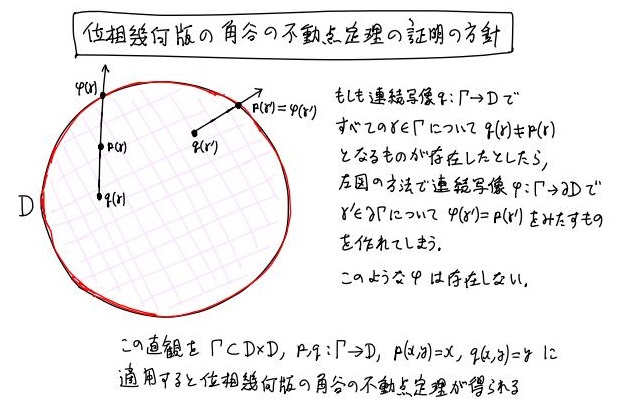 位相幾何版の角谷の不動点定理の証明の方針
φ(γ)
p(γ)
q(γ)
p(γ')=φ(γ')
q(γ')
D
もしも連続写像q:Γ→Dで
すべてのγ∈Γについて q(γ)≠p(γ)
となるものが存在したとしたら,
左図の方法で連続写像 φ:Γ→∂Dで
γ'∈∂Γについて φ(γ')=p(γ')をみたすもの
を作れてしまう.
このようなφは存在しない.
この直観を Γ⊂D×D, p,q:Γ→D, p(x,y)=x, q(x,y)=y に
適用すると位相幾何版の角谷の不動点定理が得られる